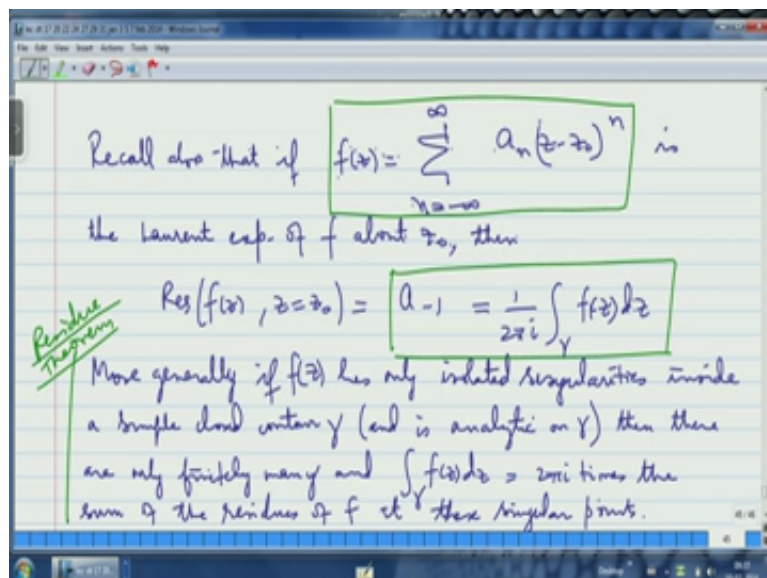 File Edit View Insert Actions Tools Help
Recall also that if f(z) = ∑_{n=-∞}^{∞} a_n (z-z_0)^n is
the Laurent exp. of f about z_0, then
Res(f(z), z=z_0) = a_{-1} = 1/2πi ∫_γ f(z) dz
Residue
Theorem
More generally if f(z) has only isolated singularities inside
a simple closed contour γ (and is analytic on γ) then there
are only finitely many and ∫_γ f(z) dz = 2πi times the
sum of the residues of f at these singular points.
45
Desktop